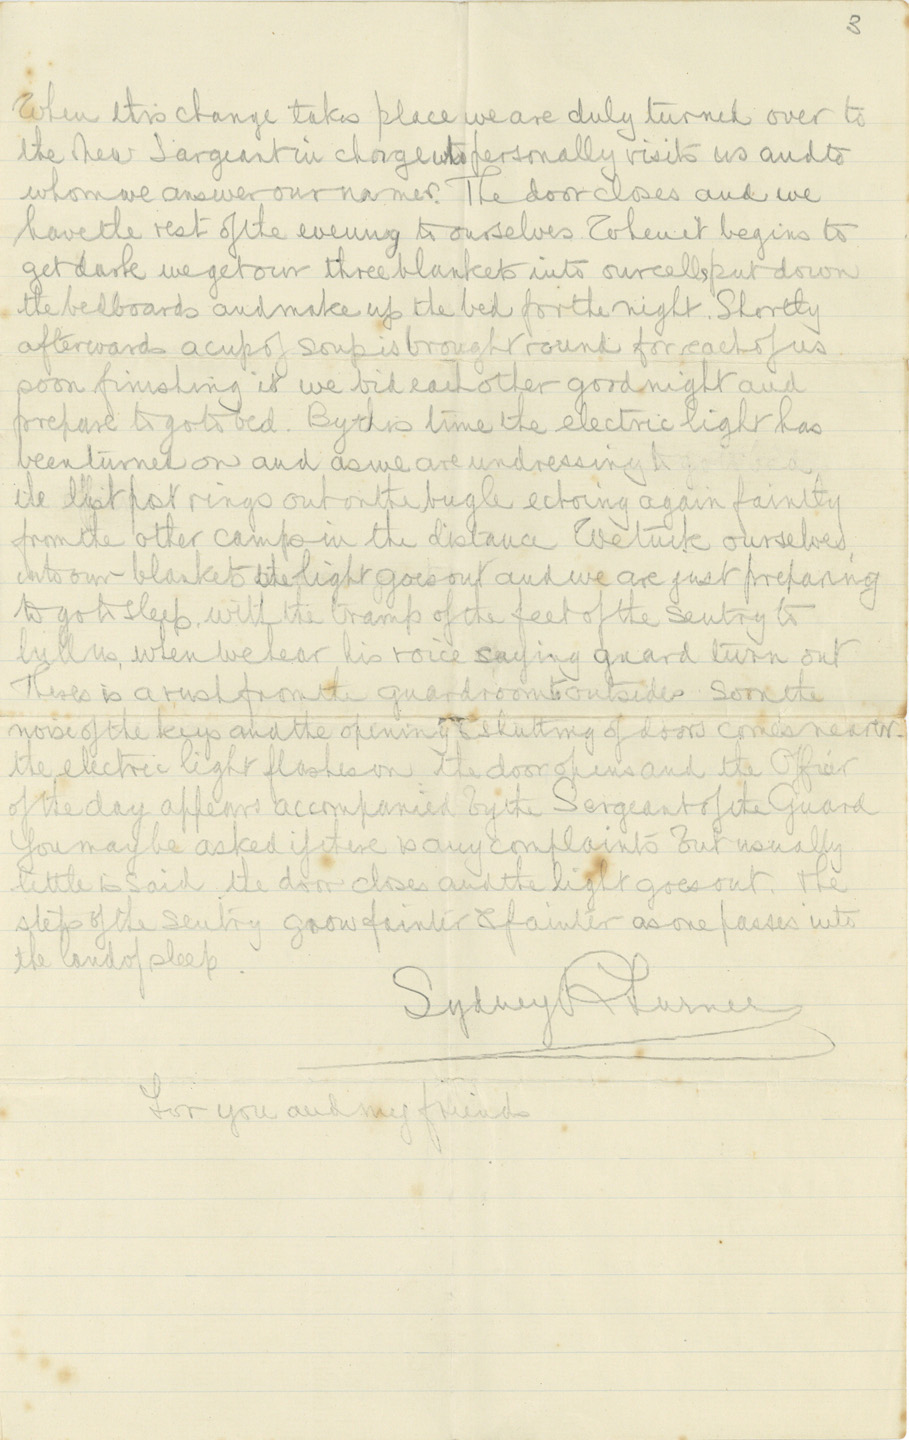 3
When this change takes place we are duly turned over to
the New Sargeant in charge who personally visits us and to
whom we answer our names. The door closes and we
have the rest of the evening to ourselves When it begins to
get dark we get our three blankets into our cells, put down
the bedboards and make up the bed for the night. Shortly
afterwards a cup of soup is brought round for each of us
soon finishing it we bid each other good night and
prepare to go to bed. By this time the electric light has
been turned on and as we are undressing
the last post rings out on the bugle echoing again faintly
from the other camps in the distance We tuck ourselves,
into our blankets the light goes out and we are just preparing
to go to sleep, with the tramp of the feet of the sentry to
lull us, when we hear his voice saying guard turn out
Theres is a rush from the guardroom to outside Soon the
noise of the keys and the opening & shutting of doors comes nearer.
the electric light flashes on the door opens and the Officer
of the day appears accompanied by the Sergeant of the Guard
You may be asked if there is any complaints but usually
little is said the door closes and the light goes out. The
step of the sentry grow fainter & fainter as one passes into
the land of sleep.
Sydney R Turner
For you and my friends